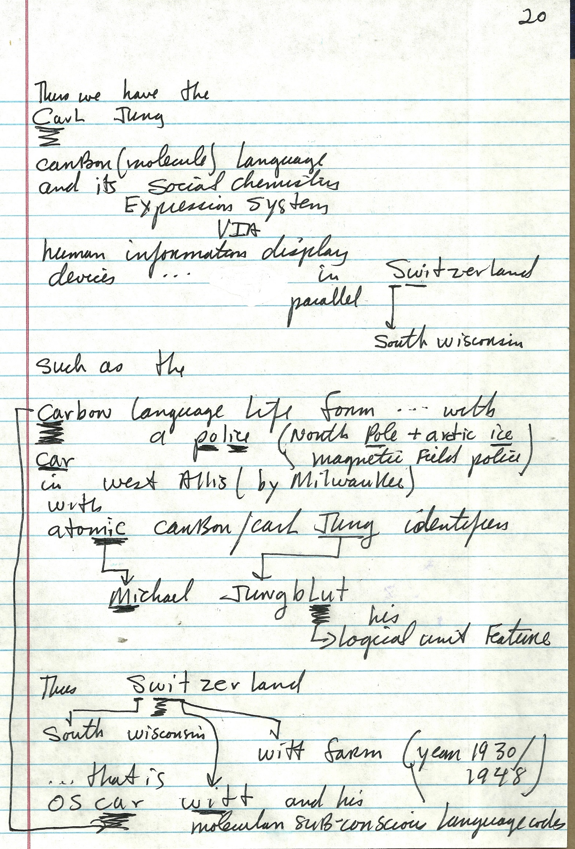 20
Thus we have the
Carl Jung
carBon (molecule) Language
and its Social Chemistry
Expression System
VIA
human information display
devices ... in Switzerland
parallel
South wisconsin
such as the
Carbon Language Life Form ... with
a police (North Pole + artic ice
car magnetic Field police)
in west Allis (by Milwaukee)
with
atomic carBon/carl Jung identifiers
Michael Jungblut
his
Logical unit Feature
Thus Switzerland
South wisconsin
witt farm (year 1930/
1948)
... that is
OScar witt and his
molecular sub-conscious Language codes